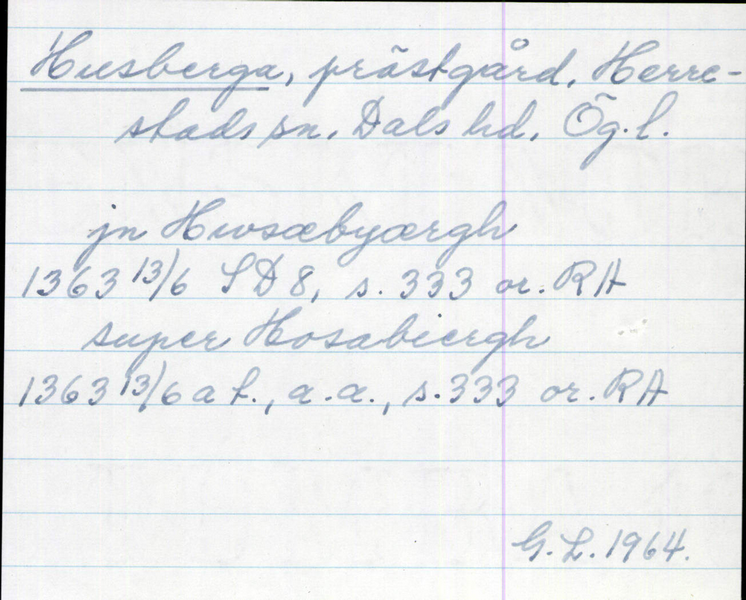 Husberga, prästgård, Herre-
stads sn. Dals hd. Ög. l.
jn Hwsæbyærgh
1363 13/6 SD 8, s. 333 or. RA
super Hosabiergh
1363 13/6 a t., a.a., s. 333 or. RA
G. L. 1964.